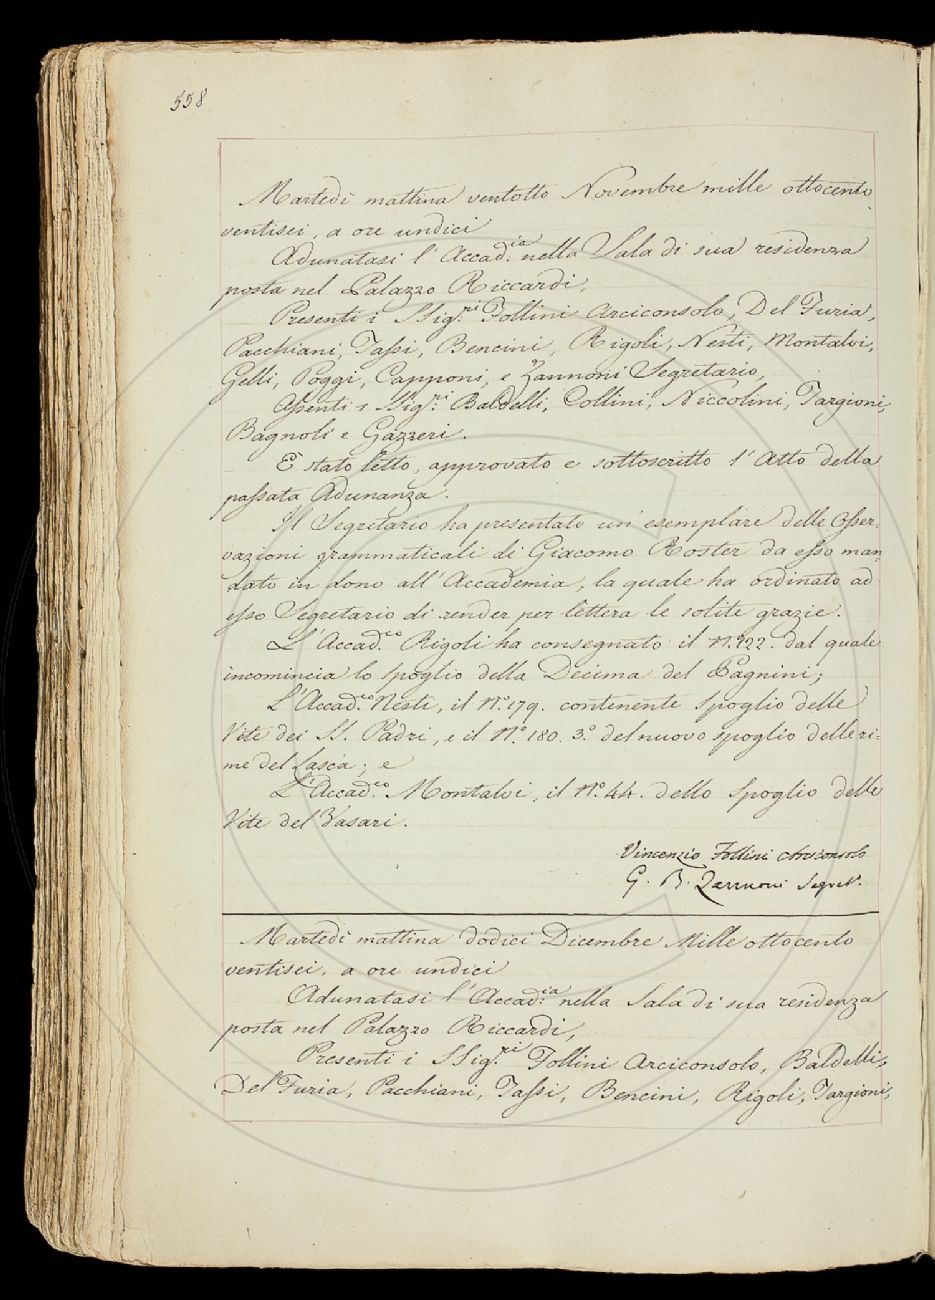 558
Martedì mattina ventotto Novembre mille ottocento
ventisei, a ore undici
Adunatasi l'Accad.ia nella Sala di sua residenza
posta nel Palazzo Riccardi,
Presenti i SSig.ri Follini Arciconsolo, Del Furia,
Pacchiani, Tassi, Bencini, Rigoli, Nesti, Montalvi,
Gelli, Poggi, Capponi, e Zannoni Segretario,
Assenti i SSig.ri Baldelli, Collini, Niccolini, Targioni,
Bagnoli e Gazzeri.
È stato letto, approvato e sottoscritto l'Atto della
passata Adunanza.
Il Segretario ha presentato un'esemplare delle Osser-
vazioni grammaticali di Giacomo Roster da esso man-
dato in dono all'Accademia, la quale ha ordinato ad
esso Segretario di render per lettera le solite grazie.
L'Accad.co Rigoli ha consegnato il N.º 22. dal quale
incomincia lo spoglio della Decima del Pagnini;
L'Accad.co Nesti, il N.º 179. contenente spoglio delle
Vite dei SS. Padri, e il N.º 180. 3.º del nuovo spoglio delle ri-
me del Lasca; e
L'Accad.co Montalvi, il N.º 44. dello Spoglio delle
Vite del Vasari.
Vincenzio Follini Arciconsolo
G. B. Zannoni Segret.
Martedì mattina dodici Dicembre Mille ottocento
ventisei, a ore undici
Adunatasi l'Accad.ia nella Sala di sua residenza
posta nel Palazzo Riccardi,
Presenti i SSig.ri Follini Arciconsolo, Baldelli,
Del Furia, Pacchiani, Tassi, Bencini, Rigoli, Targioni,